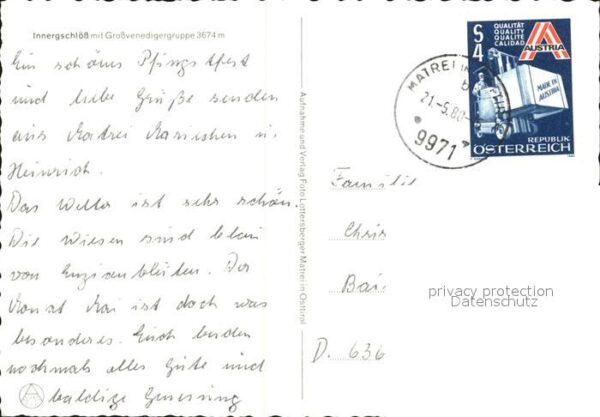 Innergschlöß mit Großvenedigergruppe 3674 m
Ein schönes Pfingstfest
und liebe Grüße senden
aus Matrei Mariechen u.
Heinrich.
Das Wetter ist sehr schön.
Die Wiesen sind blau
von Enzianblüten. Der
Monat Mai ist doch was
besonderes. Euch beiden
nochmals alles Gute und
baldige Genesung
Aufnahme und Verlag Foto Lottersberger Matrei in Osttirol
QUALITÄT
QUALITY
QUALITE
CALIDAD
S
4
AUSTRIA
MADE IN
AUSTRIA
REPUBLIK
ÖSTERREICH
MATREI IN OSTTIROL
b
21.-5.80
9971
Familie
Chris
Bai
D. 636
privacy protection
Datenschutz